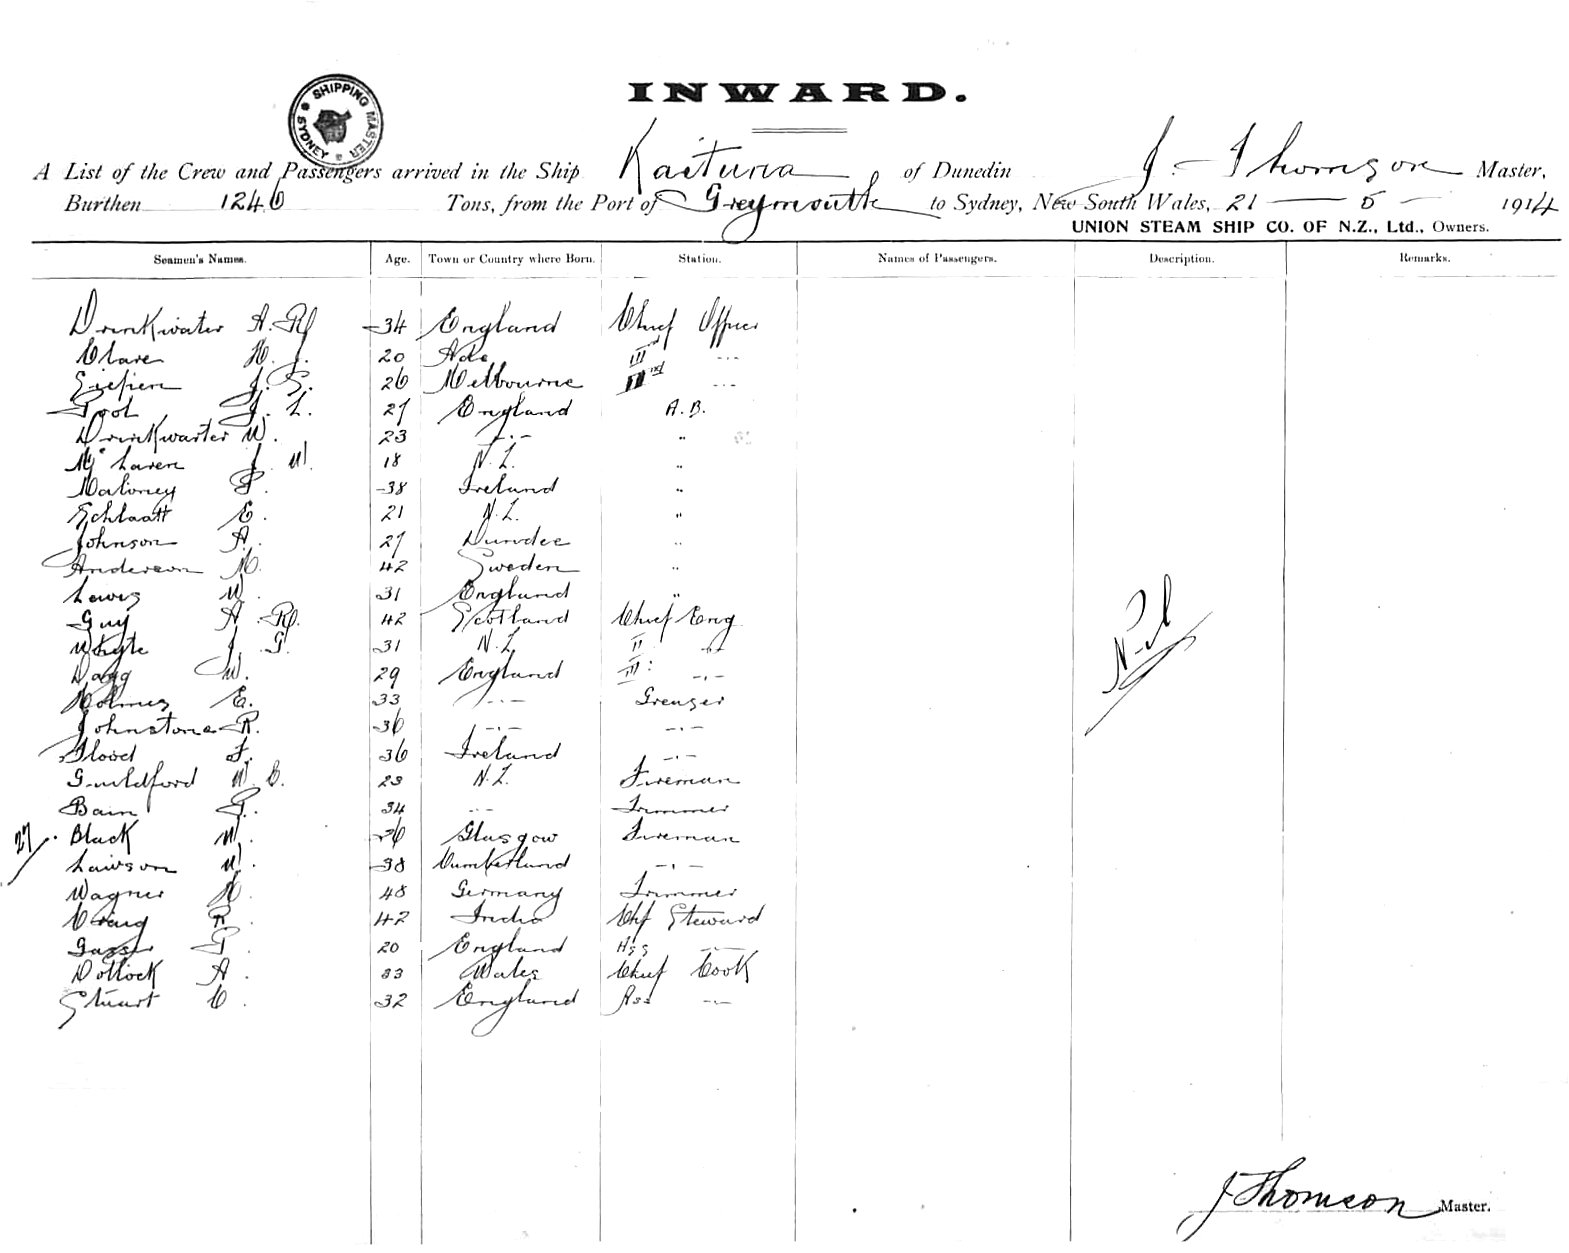 INWARD.
SHIPPING MASTER SYDNEY
A List of the Crew and Passengers arrived in the Ship Kaituna of Dunedin J. Thomson Master,
Burthen 1246 Tons, from the Port of Greymouth to Sydney, New South Wales, 21 — 5 — 1914
UNION STEAM SHIP CO. OF N.Z., Ltd., Owners.
Seamen's Names. Age. Town or Country where Born. Station. Names of Passengers. Description. Remarks.
Drinkwater A. R. 34 England Chief Officer
Clare H. J. 20 Ade III -·-
J. S. 26 Melbourne IInd -·-
Pool J. L. 27 England A.B.
Drinkwarter W. 23 -·- "
McLaren J. W. 18 N.Z. "
Maloney P. 38 Ireland "
Schlaatt E. 21 N.Z. "
Johnson A. 27 Dundee "
Anderson M. 42 Sweden "
Lewis W. 31 England "
Guy A. R. 42 Scotland Chief Eng
Whyte J. G. 31 N.Z. II -·-
Dagg W. 29 England III: -·-
Holmes E. 33 -·- Greaser
Johnstone R. 36 -·- -·-
Flood F. 36 Ireland -·-
Guildford W. C. 23 N.Z. Fireman
Bain G. 34 -·- Trimmer
27 Black W. 26 Glasgow Fireman
Lawson W. 38 Cumberland -·-
Wagner H. 48 Germany Trimmer
Craig R. 42 India Chf Steward
G. 20 England Ass —
Dollock A. 33 Wales Chief Cook
Stuart C. 32 England Ass -·-
Nil
J Thomson Master.